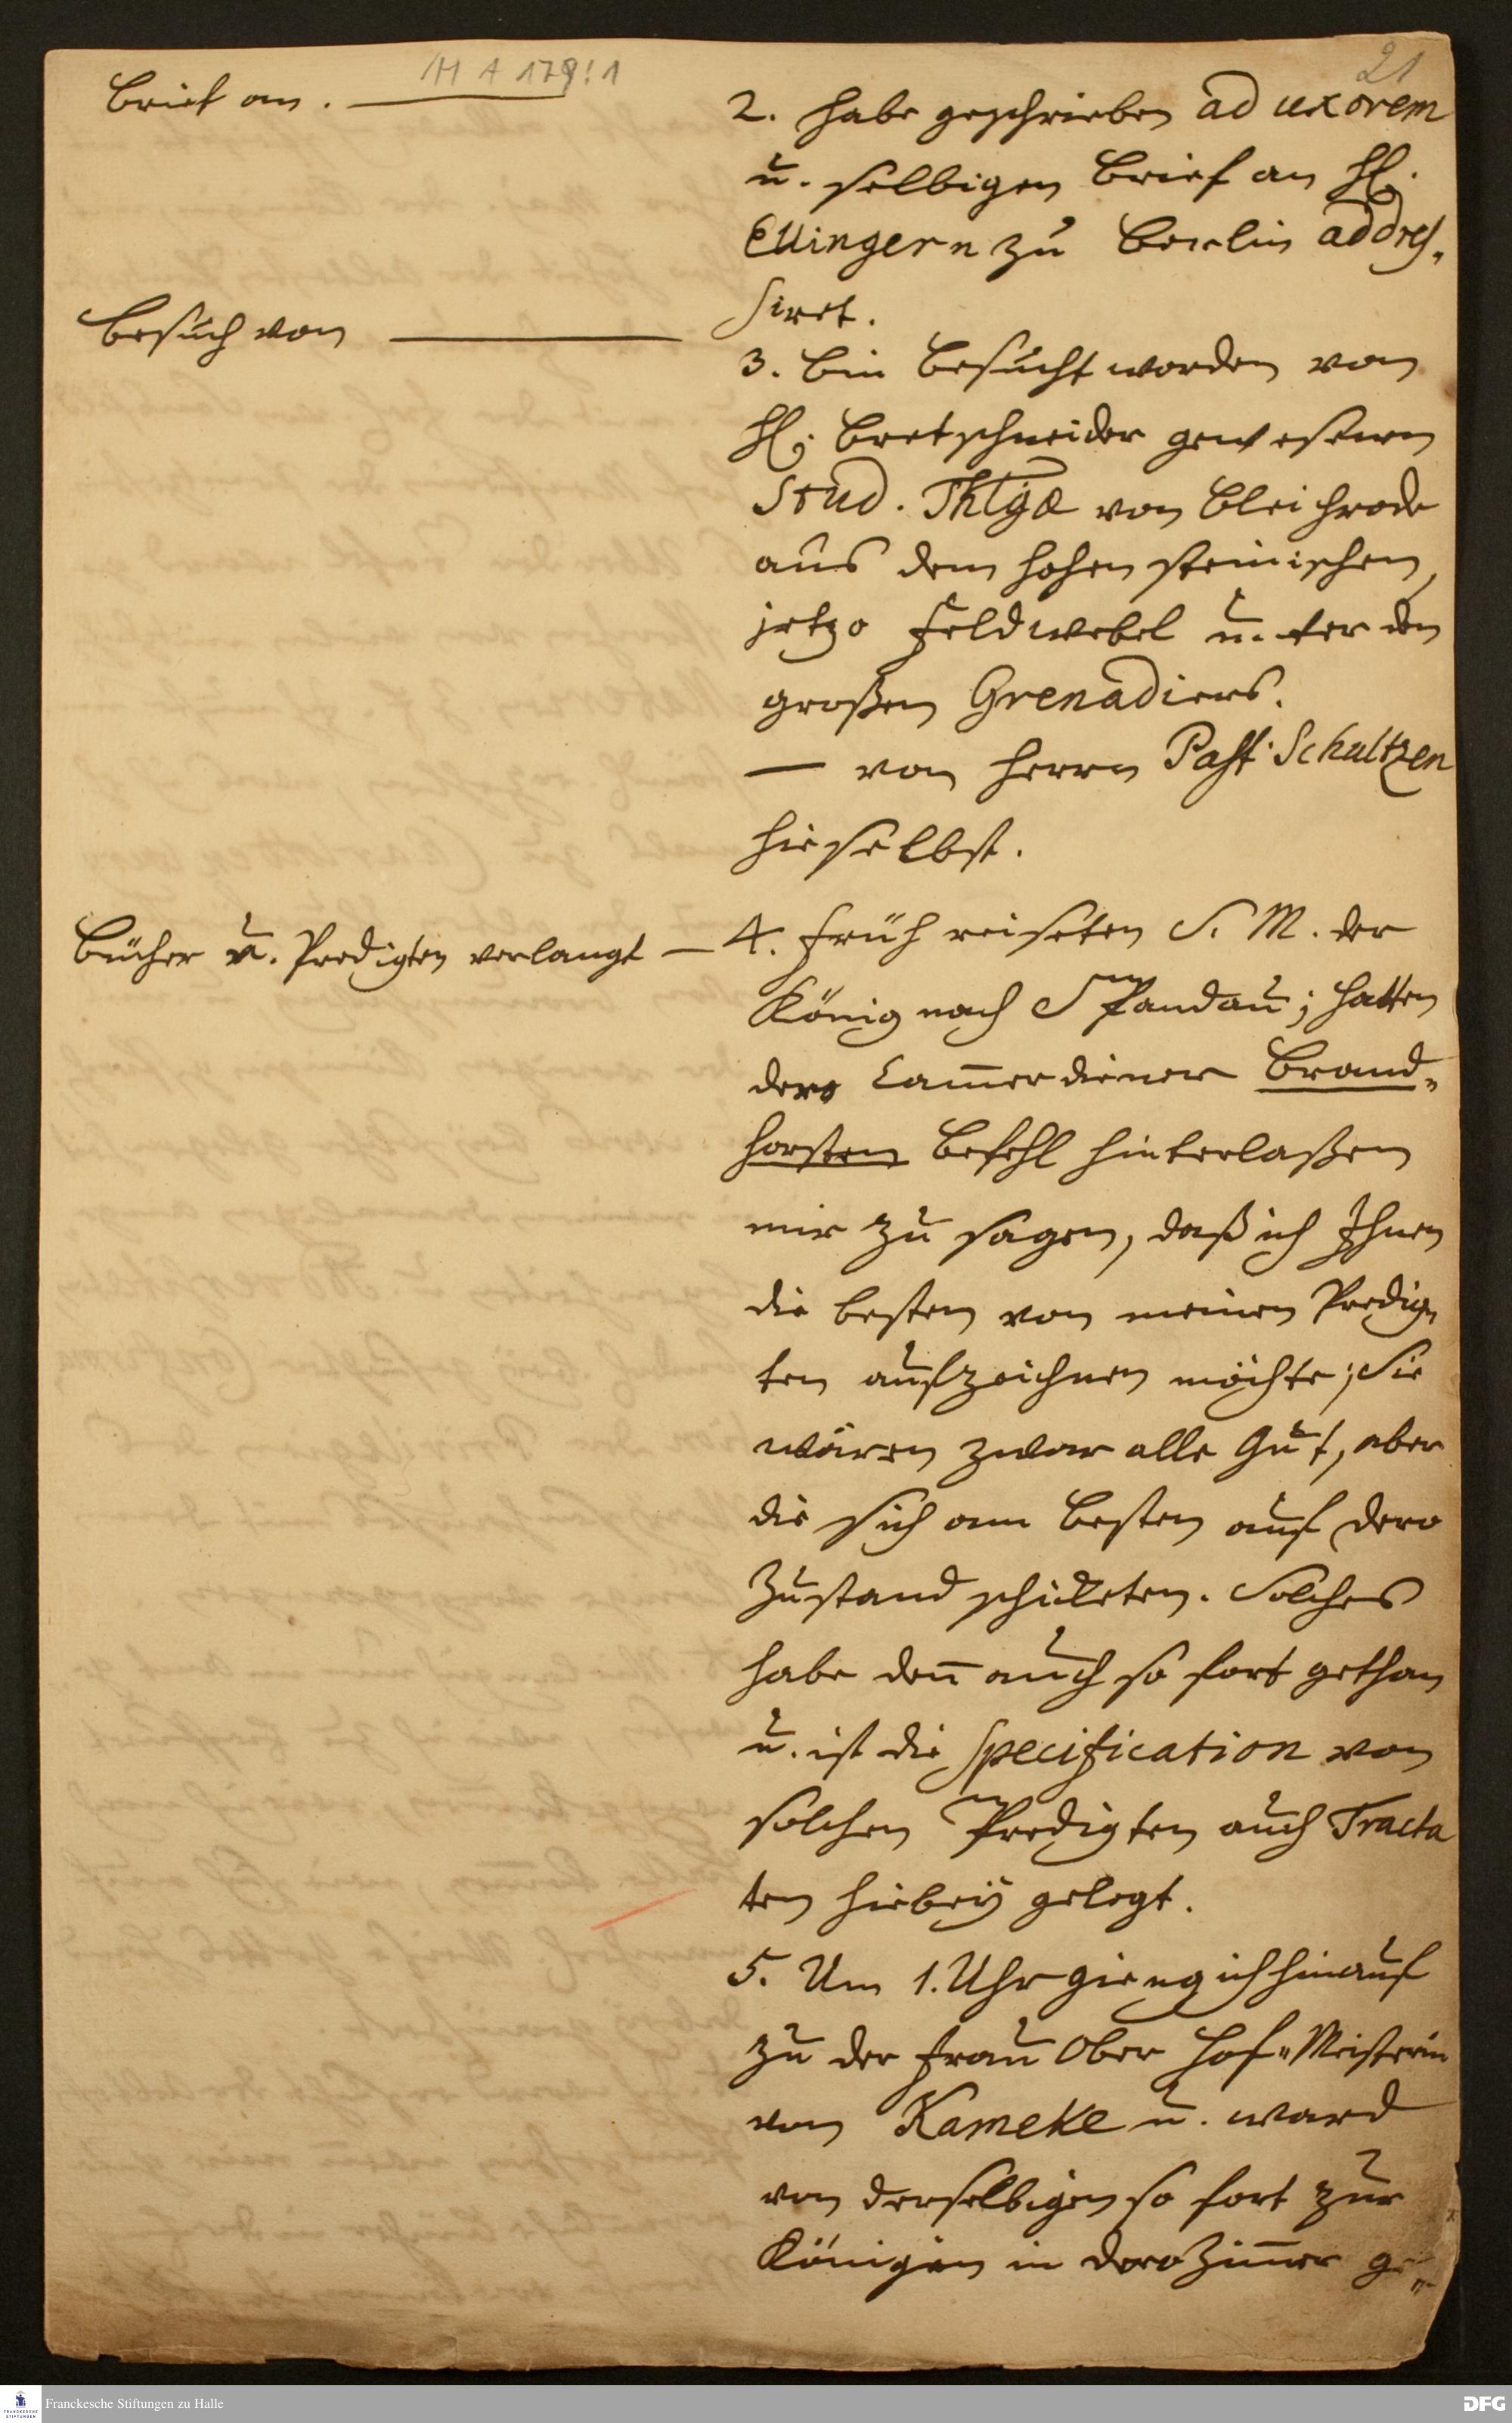 H A 179:1
21
Brief an.
2. habe geschrieben ad uxorem
u. selbigen Brief an H.
Ellingern zu Berlin addres-
siret.
Besuch von
3. bin besucht worden von
H. Bretschneider gewesenen
Stud. Thlgæ von Bleichrode
aus dem Hohensteinischen,
jetzo Feldwebel unter den
großen Grenadiers.
— von Herrn Past. Schultzen
hieselbst.
Bücher u. Predigten verlangt —
4. Früh reiseten S. M. der
König nach Spandau; hatten
dero Cam̅erdiener Brand-
horsten Befehl hinterlaßen
mir zu sagen, daß ich Ihnen
die besten von meinen Predig-
ten aufzeichnen möchte; Sie
wären zwar alle gut, aber
die sich am besten auf dero
Zustand schickten. Solches
habe den̅ auch so fort gethan
u. ist die Specification von
solchen Predigten auch Tracta
ten hiebey gelegt.
5. Um 1. Uhr gieng ich hinauf
zu der Frau Ober Hof-Meisterin
von Kameke u. ward
von derselbigen so fort zur
Königin in dero Zim̅er ge-
Franckesche Stiftungen zu Halle
DFG